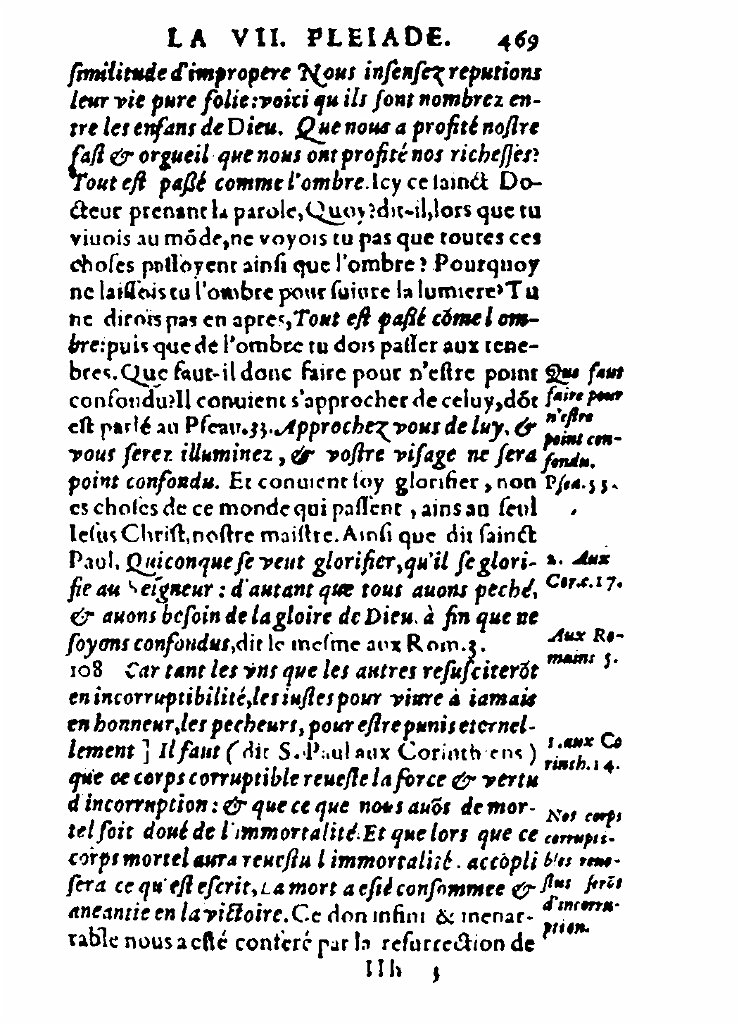 LA VII. PLEIADE. 469
ſimilitude d'impropere Nous inſenſez reputions
leur vie pure folie: voici qu ils ſont nombrez en-
tre les enfans de Dieu. Que nous a profité noſtre
faſt & orgueil que nous ont profité nos richeſſes?
Tout eſt paßé comme l'ombre. Icy ce ſainct Do-
cteur prenant la parole, Quoy? dit-il, lors que tu
viuois au mōde, ne voyois tu pas que toutes ces
choſes paſſoyent ainſi que l'ombre? Pourquoy
ne laiſſois tu l'ombre pour ſuiure la lumiere? Tu
ne dirois pas en apres, Tout eſt paßé cōme l om-
bre: puis que de l'ombre tu dois paſſer aux tene-
bres. Que faut-il donc faire pour n'eſtre point
confondu? Il conuient s'approcher de celuy, dōt
eſt parlé au Pſeau. 33. Approchez vous de luy, &
vous ſerez illuminez, & voſtre viſage ne ſera
point confondu. Et conuient ſoy glorifier, non
es choſes de ce monde qui paſſent, ains au ſeul
Ieſus Chriſt, noſtre maiſtre. Ainſi que dit ſainct
Paul. Quiconque ſe veut glorifier, qu'il ſe glori-
fie au Seigneur: d'autant que tous auons peché,
& auons beſoin de la gloire de Dieu. à fin que ne
ſoyons confondus, dit le meſme aux Rom. 3.
108 Car tant les vns que les autres reſuſciterōt
en incorruptibilité, les iuſtes pour viure à iamais
en honneur, les pecheurs, pour eſtre punis eternel-
lement ] Il faut ( dit S. Paul aux Corinthiens )
que ce corps corruptible reueſte la force & vertu
d incorruption: & que ce que nous auōs de mor-
tel ſoit doué de l immortalité. Et que lors que ce
corps mortel aura reueſtu l immortalité. accōpli
ſera ce qu' eſt eſcrit, La mort a eſté conſommee &
aneantie en la victoire. Ce don infini & inenar-
rable nous a eſté conferé par la reſurrection de
HHh 3
Que faut
faire pour
n'eſtre
point con-
fondu.
Pſea. 33.
2. Aux
Cor. c. 17.
Aux Ro-
mains 5.
1. aux Co
rinth. 14.
Nos corps
corrupti-
bles reue-
ſtus ſerōt
d'incorru-
ption.